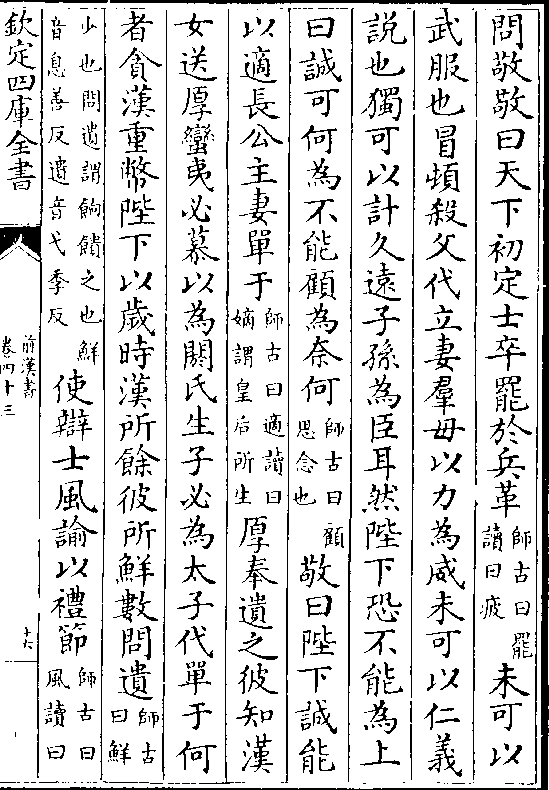 問敬敬曰天下初定士卒罷於兵革師古曰罷讀曰疲未可以
武服也冒頓殺父代立妻羣母以力為威未可以仁義
説也獨可以計久遠子孫為臣耳然陛下恐不能為上
曰誠可何為不能顧為奈何師古曰顧思念也敬曰陛下誠能
以適長公主妻單于師古曰適讀曰嫡謂皇后所生厚奉遺之彼知漢
女送厚蠻夷必慕以為閼氏生子必為太子代單于何
者貪漢重幣陛下以歲時漢所餘彼所鮮數問遺師古曰鮮
少也問遺謂餉饋之也鮮音息善反遺音弋季反使辯士風諭以禮節師古曰風讀曰
欽定四庫全書
前漢書
卷四十三
十六